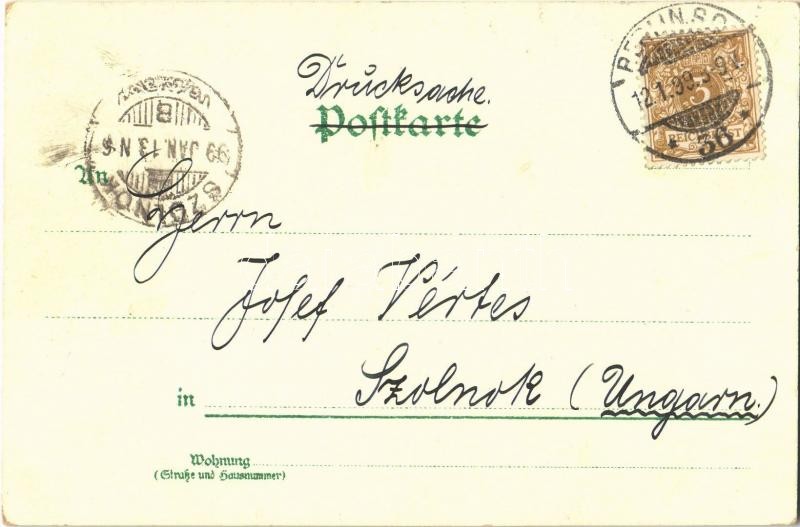 Drucksache.
Postkarte
BERLIN S.O.
12.1.99.
* 36 *
REICHSPOST
3
B
99 JAN. 13 N 6
SZOLNOK
An
Herrn
Josef Vértes
in Szolnok (Ungarn.)
Wohnung
(Straße und Hausnummer)